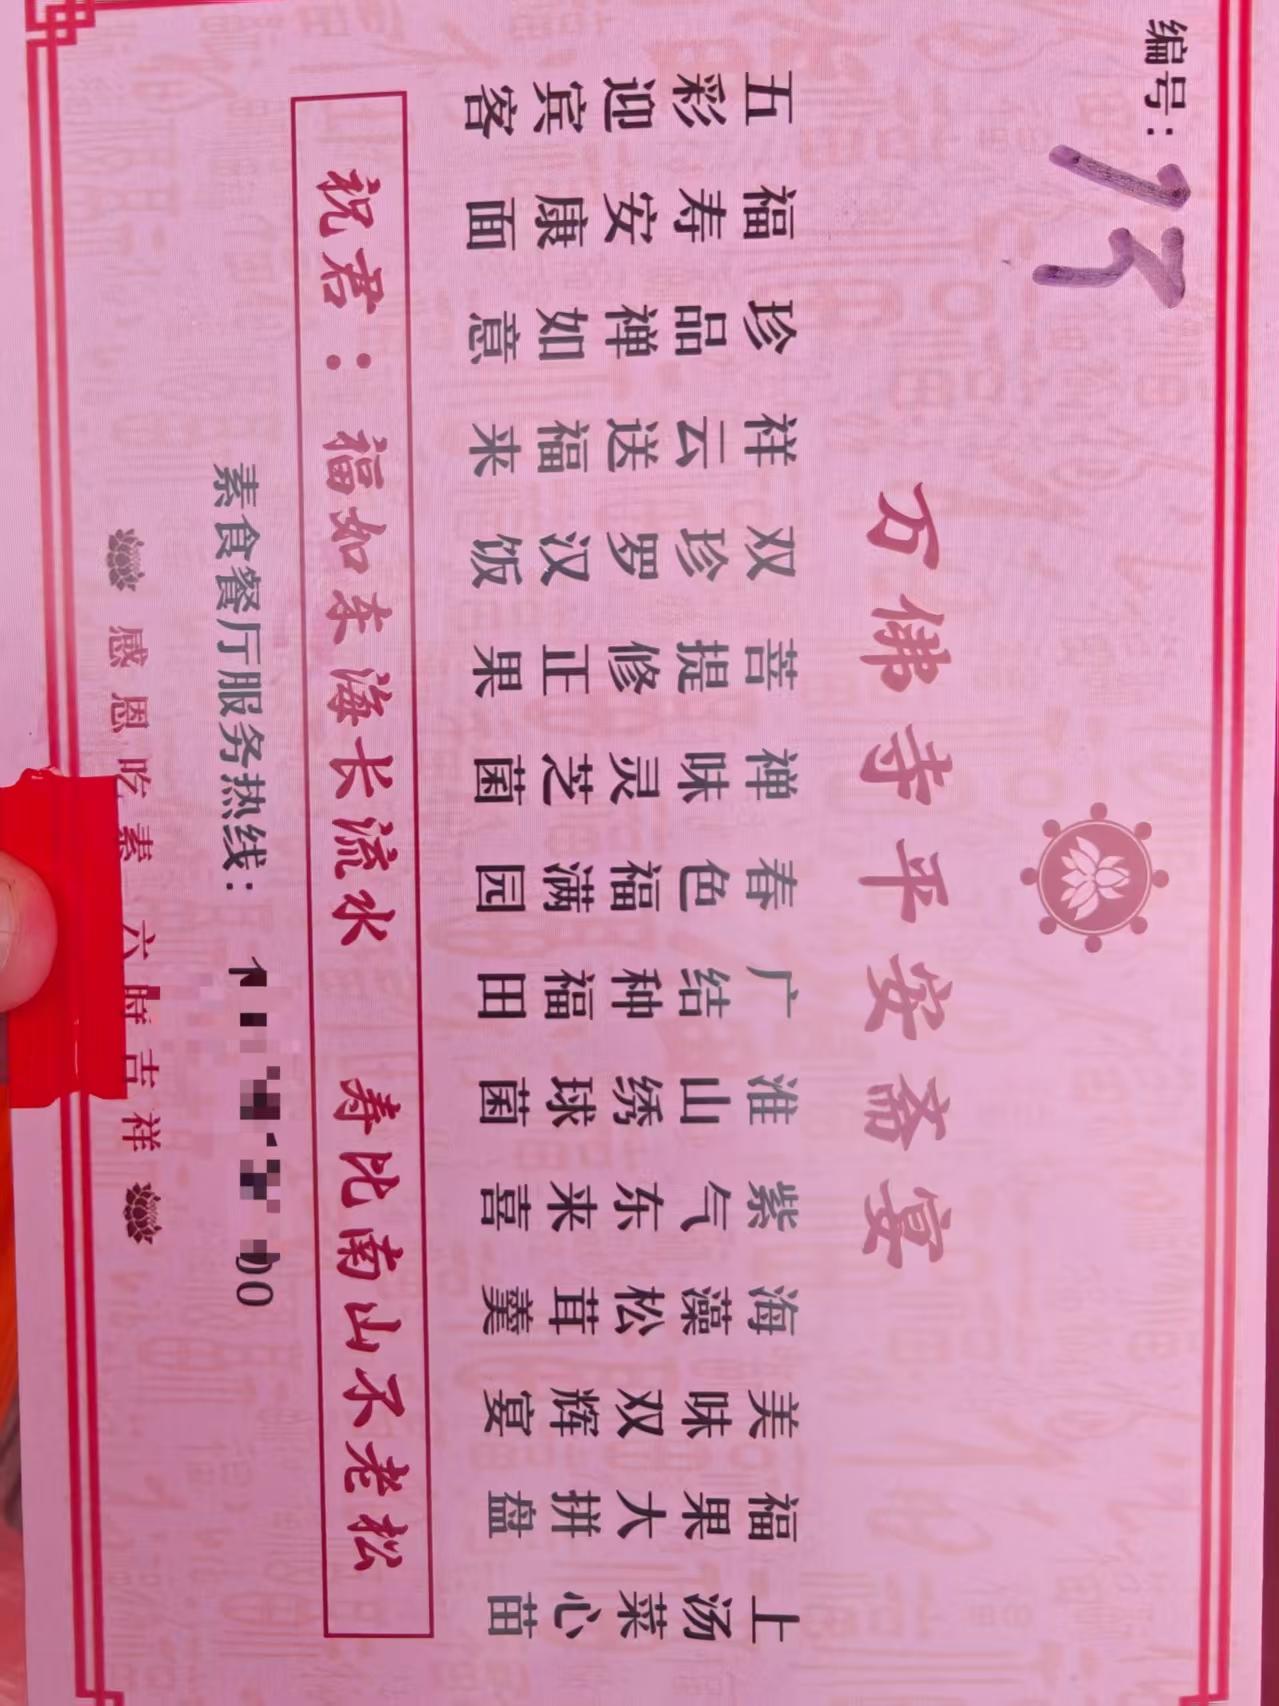 编号：
万佛寺平安斋宴
五彩迎宾客
福寿安康面
珍品禅如意
祥云送福来
双珍罗汉饭
菩提修正果
禅味灵芝菌
春色福满园
广结种福田
淮山绣球菌
紫气东来喜
海藻松茸羹
美味双辉宴
福果大拼盘
上汤菜心苗
祝君：福如东海长流水 寿比南山不老松
素食餐厅服务热线：
感恩吃素 六時吉祥